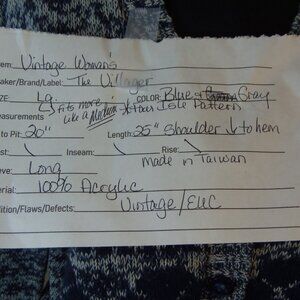 em: Vintage Woman's
aker/Brand/Label: The Villager
ZE: Lg. COLOR: Blue & Gray
easurements → Fits more like a Medium * Fair Isle Pattern
to Pit: 20" Length: 25" shoulder ↓ to hem
st: \ Inseam: \ Rise: \
eve: Long made in Taiwan
erial: 100% Acrylic
dition/Flaws/Defects: Vintage/EUC